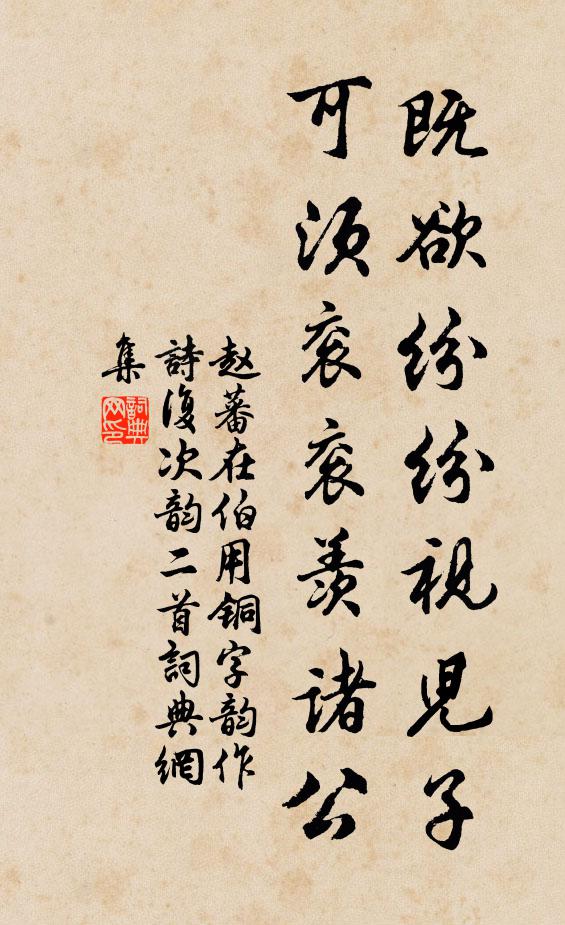 既欲纷纷视儿子
可须衮衮羡諸公
赵蕃在伯用铜字韵作
詩復次韵二首詞典網
集
詞典
网印